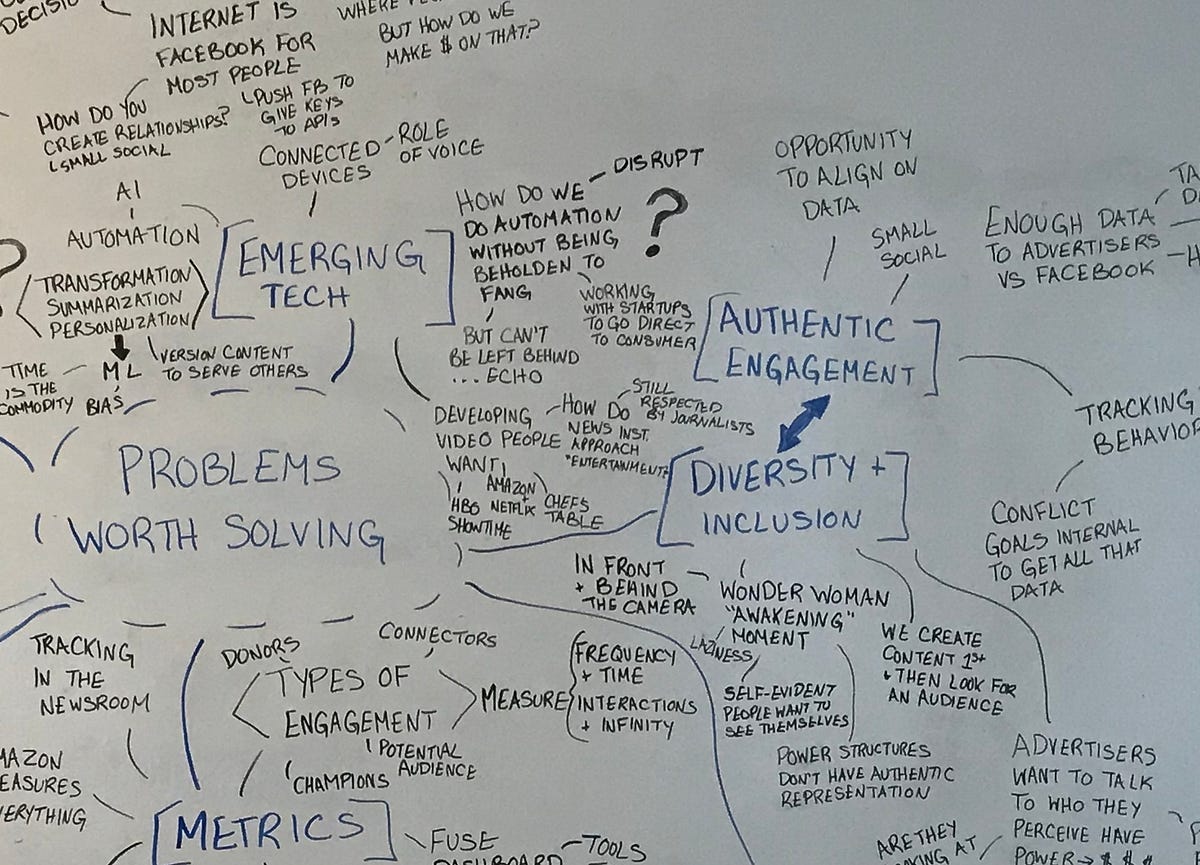 INTERNET IS
FACEBOOK FOR
MOST PEOPLE
BUT HOW DO WE
MAKE $ ON THAT?
HOW DO YOU
CREATE RELATIONSHIPS?
SMALL SOCIAL
PUSH FB TO
GIVE KEYS
TO APIs
CONNECTED
DEVICES
ROLE
OF VOICE
AI
AUTOMATION
TRANSFORMATION
SUMMARIZATION
PERSONALIZATION
ML
BIAS
TIME
IS THE
COMMODITY
VERSION CONTENT
TO SERVE OTHERS
[EMERGING
TECH]
HOW DO WE
DO AUTOMATION
WITHOUT BEING
BEHOLDEN TO
FANG
DISRUPT
?
BUT CAN'T
BE LEFT BEHIND
... ECHO
WORKING
WITH STARTUPS
TO GO DIRECT
TO CONSUMER
OPPORTUNITY
TO ALIGN ON
DATA
SMALL
SOCIAL
ENOUGH DATA
TO ADVERTISERS
VS FACEBOOK
[AUTHENTIC
ENGAGEMENT]
TRACKING
BEHAVIOR
CONFLICT
GOALS INTERNAL
TO GET ALL THAT
DATA
PROBLEMS
WORTH SOLVING
DEVELOPING
VIDEO PEOPLE
WANT
HOW DO
NEWS INST.
APPROACH
"ENTERTAINMENT"
STILL
RESPECTED
BY JOURNALISTS
AMAZON
HBO NETFLIX
SHOWTIME
CHEFS
TABLE
[DIVERSITY +
INCLUSION]
IN FRONT
+ BEHIND
THE CAMERA
WONDER WOMAN
"AWAKENING"
MOMENT
LAZINESS
SELF-EVIDENT
PEOPLE WANT TO
SEE THEMSELVES
WE CREATE
CONTENT 1st
+ THEN LOOK FOR
AN AUDIENCE
POWER STRUCTURES
DON'T HAVE AUTHENTIC
REPRESENTATION
ADVERTISERS
WANT TO TALK
TO WHO THEY
PERCEIVE HAVE
POWER → $ $ $
ARE THEY
AT
TRACKING
IN THE
NEWSROOM
DONORS
CONNECTORS
TYPES OF
ENGAGEMENT
POTENTIAL
AUDIENCE
CHAMPIONS
MEASURE
FREQUENCY
+ TIME
INTERACTIONS
+ INFINITY
[METRICS]
FUSE
DASHBOARD
TOOLS